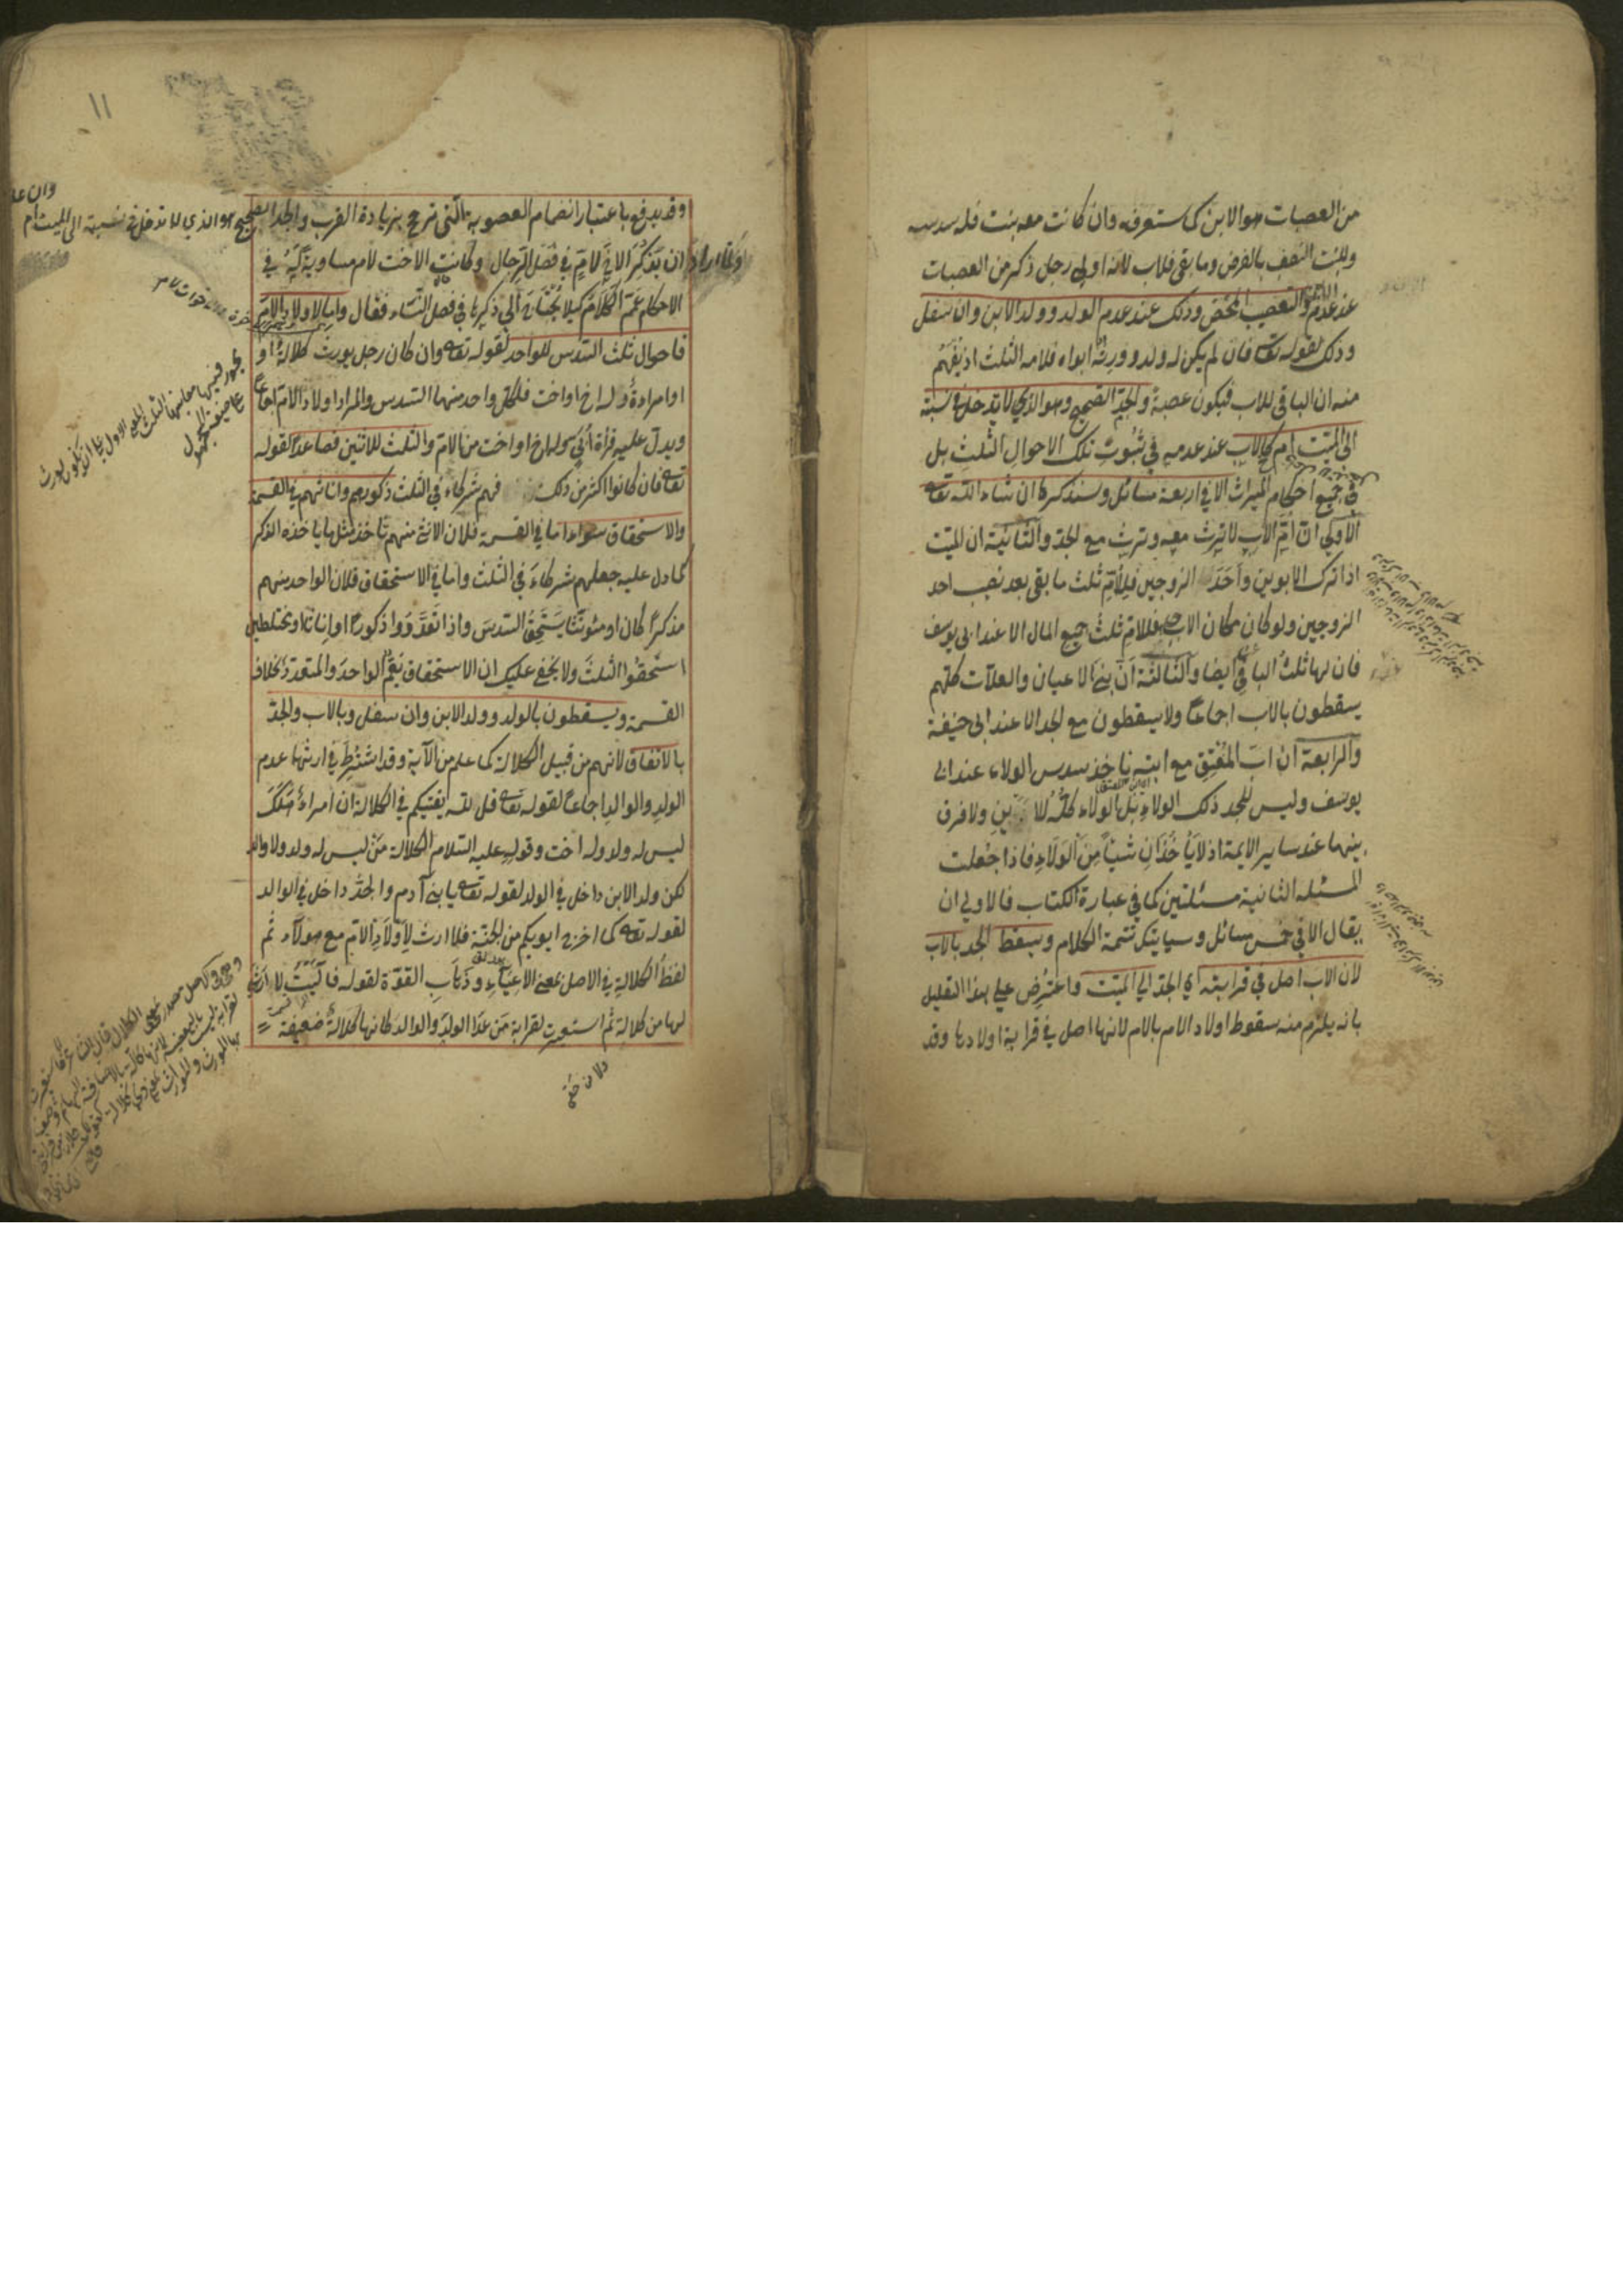 من العصبات هو الابن كما ستعرفه وان كانت معه بنت فله سدسه
وللبنت النصف بالفرض وما بقى فللاب لانه اولى رجل ذكر من العصبات
عند عدم الابن والتعصيب المحض وذلك عند عدم الولد وولد الابن وان سفل
وذلك لقوله تعالى فان لم يكن له ولد وورثه ابواه فلامه الثلث اذ يفهم
منه ان الباقى للاب فيكون عصبة والجد الصحيح وهو الذي لا يدخل فى نسبته
الى الميت ام كالاب عند عدمه في ثبوت تلك الاحوال الثلث بل
في جميع احكام الميراث الا في اربعة مسائل وسنذكرها ان شاء الله تعالى
الاولى ان ام الاب لا ترث معه وترث مع الجد والثانية ان الميت
اذا ترك الابوين واحد الزوجين فللام ثلث ما بقى بعد نصيب احد
الزوجين ولو كان مكان الاب جد فللام ثلث جميع المال الا عند ابى يوسف
فان لها ثلث الباقي ايضا والثالثة ان بني الاعيان والعلات كلهم
يسقطون بالاب اجماعا ولا يسقطون مع الجد الا عند ابى حنيفة
والرابعة ان اب المعتق مع ابنه ياخذ سدس الولاء عند ابى
يوسف وليس للجد ذلك الولاء بل الولاء كله للابن ولا فرق
بينهما عند ساير الايمة اذ لا ياخذان شيئا من الولاء فاذا جعلت
المسئلة الثانية مسئلتين كما في عبارة الكتاب فالاولى ان
يقال الا في خمس مسائل وسياتيك تتمة الكلام ويسقط الجد بالاب
لان الاب اصل في قرابته اي الجد الى الميت واعترض على هذا التعليل
بانه يلزم منه سقوط اولاد الام بالام لانها اصل في قرابة اولادها وقد
١١
وقد يدفع باعتبار انضمام العصوبة التى ترجح بزيادة القرب والجد الصحيح هو الذي لا تدخل فى نسبته الى الميت ام
ولما اراد ان يذكر الاخ لام في فصل الرجال وكانت الاخت لام مساوية له في
الاحكام عمم الكلام كيلا يحتاج الى ذكرها في فصل النساء فقال واما لاولاد الام
فاحوال ثلث السدس للواحد لقوله تعالى وان كان رجل يورث كلالة او
او امراءة وله اخ او اخت فلكل واحد منهما السدس والمراد اولاد الام اجماعا
ويدل عليه قراة ابي وله اخ او اخت من الام والثلث للاثنين فصاعدا لقوله
تعالى فان كانوا اكثر من ذلك فهم شركاء في الثلث ذكورهم واناثهم في القسمة
والاستحقاق سواء اما في القسمة فلان الانثى منهم تاخذ مثل ما ياخذه الذكر
كما دل عليه جعلهم شركاء في الثلث واما في الاستحقاق فلان الواحد منهم
مذكرا كان او مئونثا يستحق السدس واذا تعددوا ذكورا او اناثا او مختلطين
استحقوا الثلث ولا يخفى عليك ان الاستحقاق يعم الواحد والمتعدد بخلاف
القسمة ويسقطون بالولد وولد الابن وان سفل وبالاب والجد
بالاتفاق لانهم من قبيل الكلالة كما علم من الآية وقد اشترط في ارثها عدم
الولد والوالد اجماعا لقوله تعالى قل الله يفتيكم في الكلالة ان امراء هلك
ليس له ولد وله اخت وقوله عليه السلام الكلالة من ليس له ولد ولا والد
لكن ولد الابن داخل في الولد لقوله تعالى يا بني آدم والجد داخل في الوالد
لقوله تعالى كما اخرج ابويكم من الجنة فلا ارث لاولاد الام مع هولاء ثم
لفظ الكلالة في الاصل بمعنى الاعياء وذهاب القوة لقوله فآليت لا ارثي
لها من كلالة ثم استعيرت لقرابة من عدا الولد والوالد كانها كلالة ضعيفة